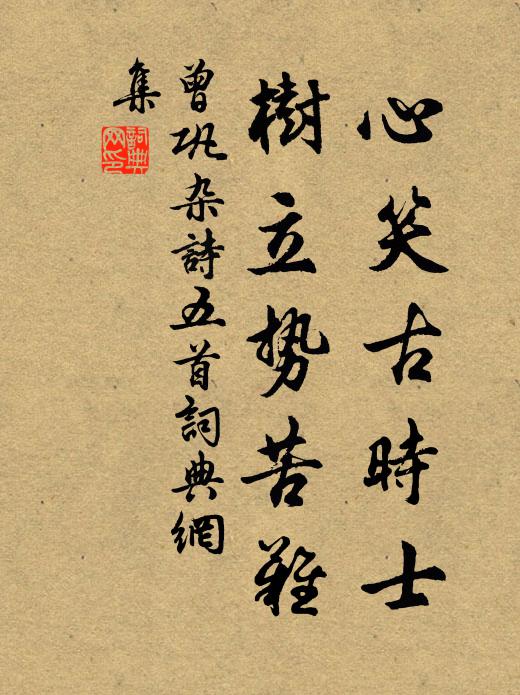 心笑古時士
樹立勢苦難
曾巩杂詩五首詞典網
集
詞典
网印